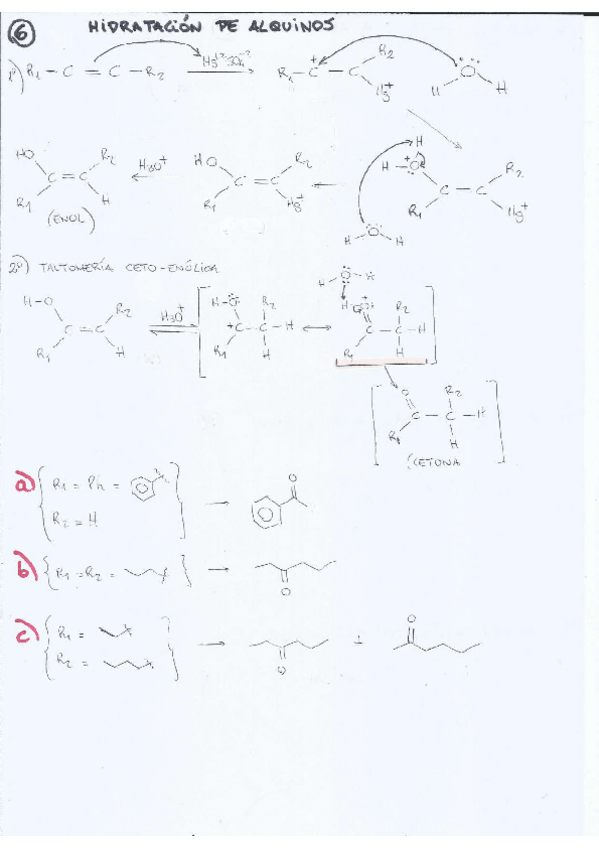 6 HIDRATACIÓN DE ALQUINOS
1º) R1 - C = C - R2 Hg+2SO4-2 R1 - C+ - C R2 Hg+ O H H
HO R2 C = C R1 H (ENOL) H3O+ HO R2 C = C R1 Hg+ H H - O+ R2 C - C R1 Hg+
H - O - H
2º) TAUTOMERÍA CETO-ENÓLICA
H-O R2 C = C R1 H H3O+ H-O R2 +C - C - H R1 H H O H H O+ R2 C - C - H R1 H
O R2 C - C - H R1 H
(CETONA
a) R1 = Ph =
R2 = H
O
b) R1 = R2 =
O
c) R1 =
R2 =
O + O